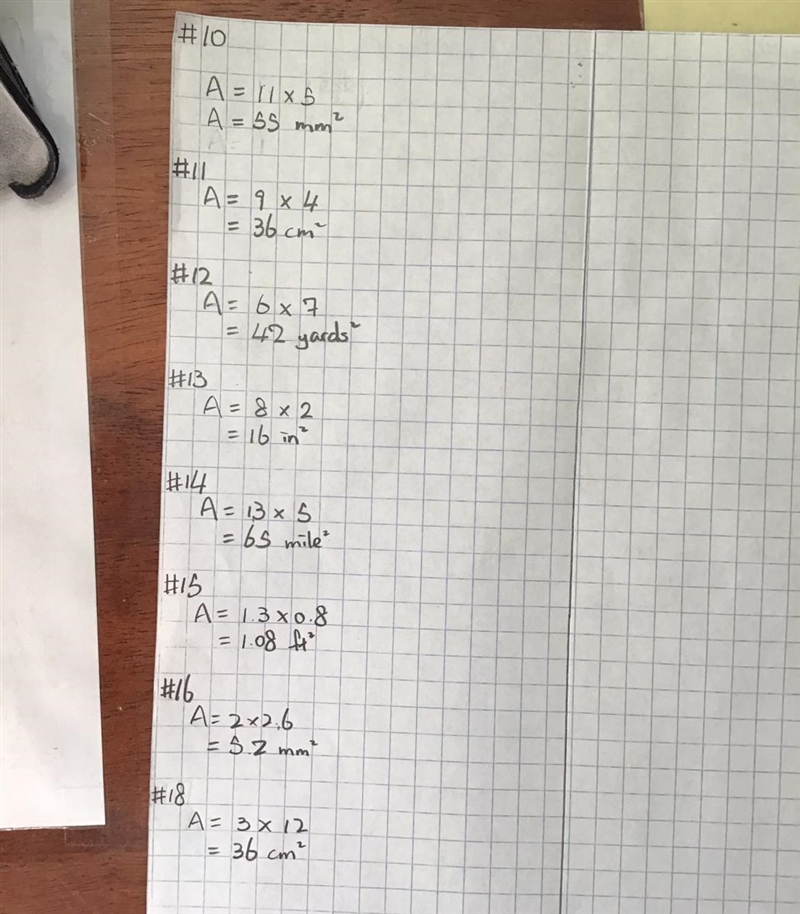 #10
A = 11 x 5
A = 55 mm²
#11
A = 9 x 4
= 36 cm²
#12
A = 6 x 7
= 42 yards²
#13
A = 8 x 2
= 16 in²
#14
A = 13 x 5
= 65 mile²
#15
A = 1.3 x 0.8
= 1.08 ft²
#16
A = 2 x 2.6
= 5.2 mm²
#18
A = 3 x 12
= 36 cm²